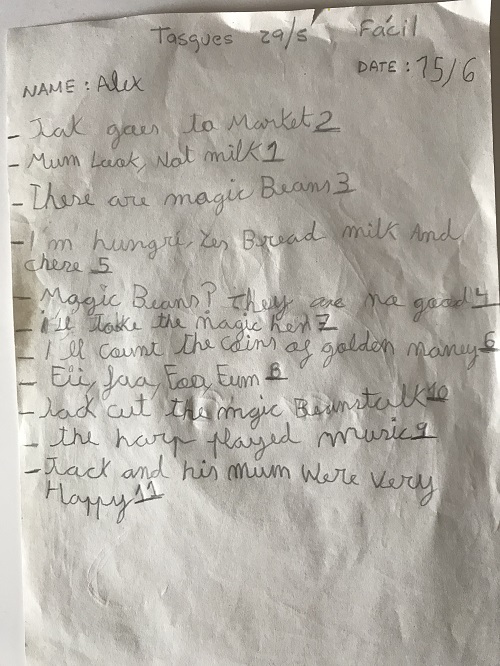 Tasques 29/5 Fácil
DATE: 15/6
NAME: Alex
- Jak goes to Market 2
- Mum Look, Not milk 1
- These are magic Beans 3
- I'm hungri, Yes Bread milk And
chese 5
- Magic Beans? they are no good 4
- i'll Take the magic hen 7
- I'll count the coins of golden money 6
- Eii, faa, Foo, Eum 8
- Jack cut the magic Beanstalk 10
- the harp played music 9
- Jack and his mum Were very
Happy 11